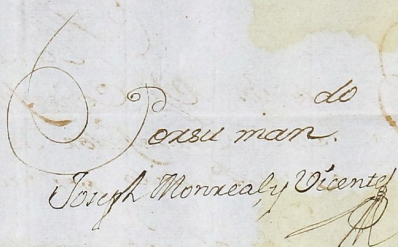 Por su man.do
Joseph Monreal y Vicente